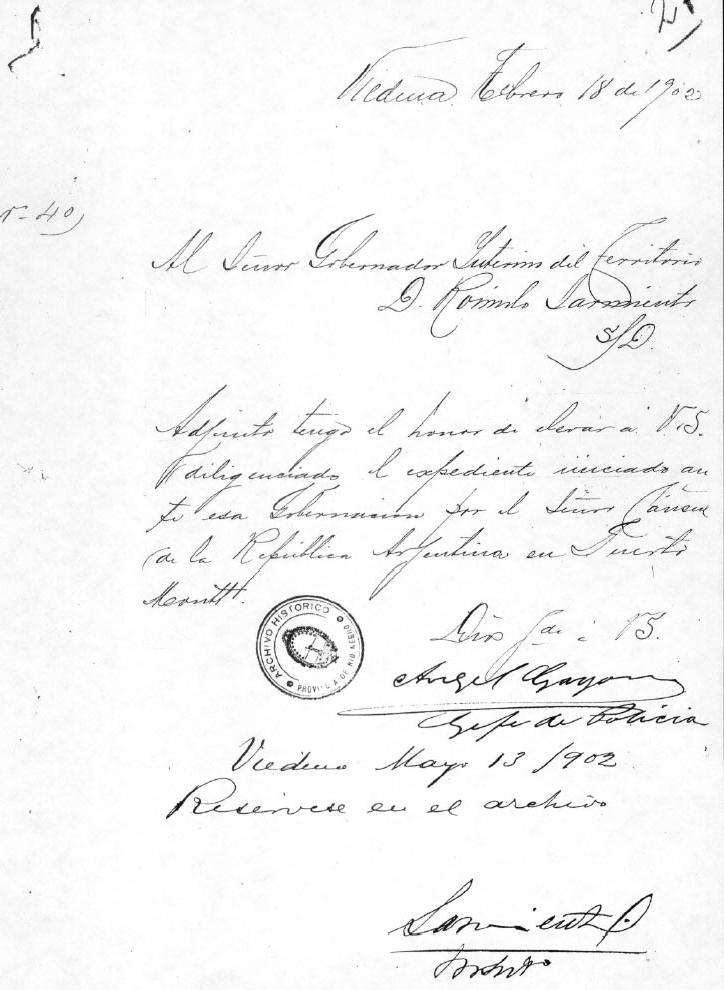 Viedma Febrero 18 de 1902
Nº 40
Al Señor Gobernador Interino del Territorio
D. Rómulo Sarmiento
S/D.
Adjunto tengo el honor de elevar á V.S.
diligenciado el expediente iniciado an
te esa Gobernacion por el Señor Cónsul
de la República Argentina en Puerto
Montt.
Dios gde á V.S.
Angel Gayon
Gefe de Policia
ARCHIVO HISTORICO
PROVINCIA DE RIO NEGRO
Viedma Mayo 13/902
Resérvese en el archivo
Sarmiento